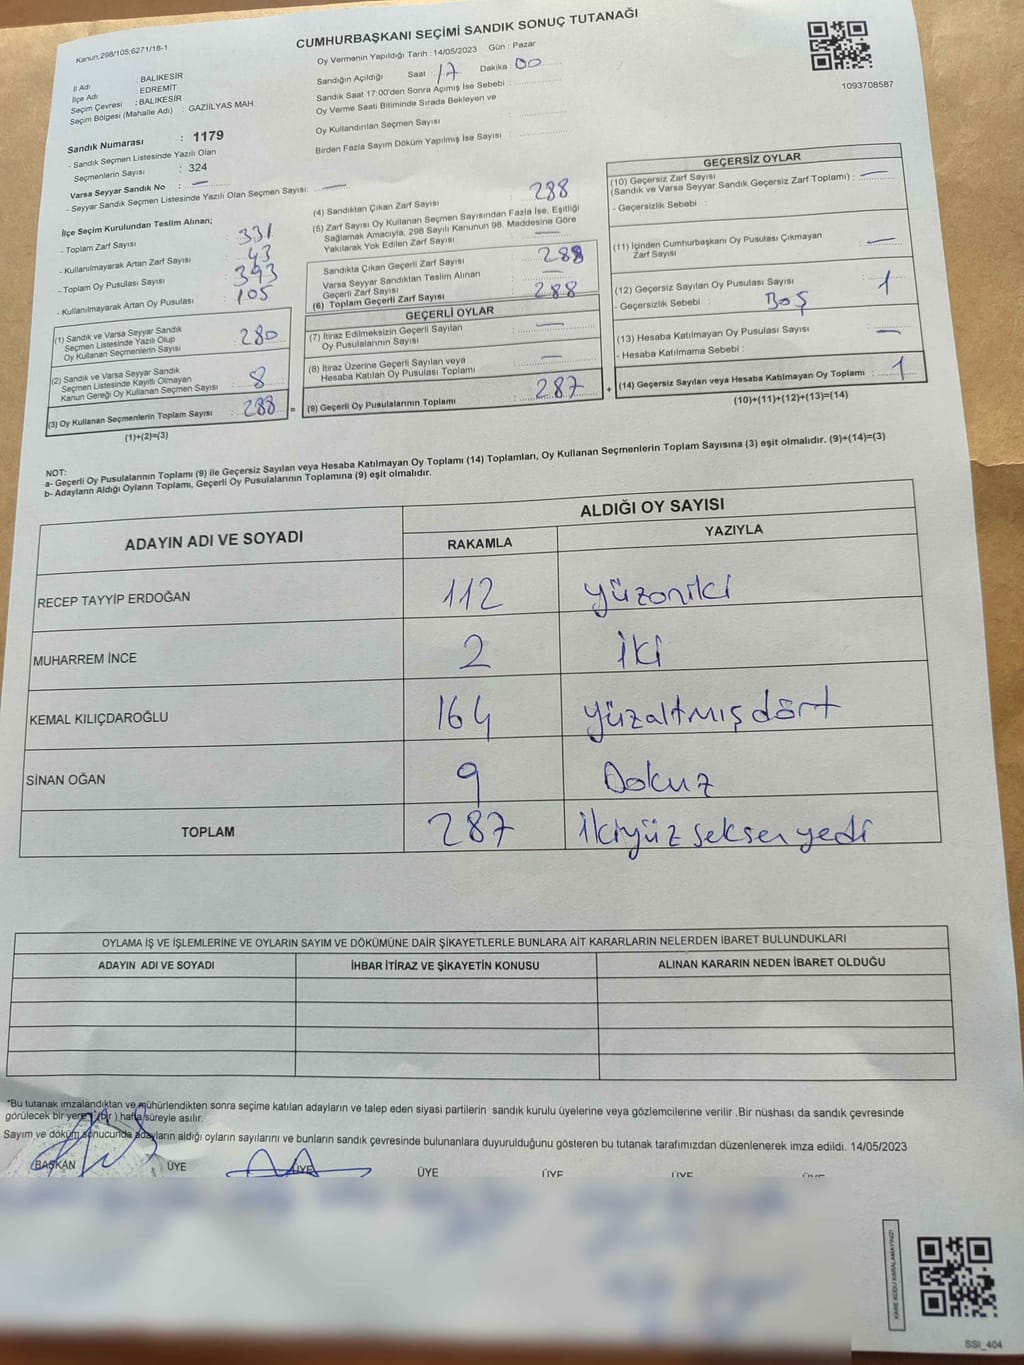 Kanun:298/105;6271/18-1
CUMHURBAŞKANI SEÇİMİ SANDIK SONUÇ TUTANAĞI
İl Adı : BALIKESİR
İlçe Adı : EDREMİT
Seçim Çevresi : BALIKESİR
Seçim Bölgesi (Mahalle Adı) : GAZİİLYAS MAH.
Oy Vermenin Yapıldığı Tarih : 14/05/2023 Gün : Pazar
Sandığın Açıldığı Saat 17 Dakika 00
Sandık Saat 17:00'den Sonra Açılmış İse Sebebi :
Oy Verme Saati Bitiminde Sırada Bekleyen ve
Oy Kullandırılan Seçmen Sayısı :
Birden Fazla Sayım Döküm Yapılmış İse Sayısı :
1093708587
Sandık Numarası : 1179
- Sandık Seçmen Listesinde Yazılı Olan
Seçmenlerin Sayısı : 324
Varsa Seyyar Sandık No : —
- Seyyar Sandık Seçmen Listesinde Yazılı Olan Seçmen Sayısı: —
İlçe Seçim Kurulundan Teslim Alınan;
- Toplam Zarf Sayısı : 331
- Kullanılmayarak Artan Zarf Sayısı : 43
- Toplam Oy Pusulası Sayısı : 393
- Kullanılmayarak Artan Oy Pusulası : 105
(1) Sandık ve Varsa Seyyar Sandık
Seçmen Listesinde Yazılı Olup
Oy Kullanan Seçmenlerin Sayısı : 280
(2) Sandık ve Varsa Seyyar Sandık
Seçmen Listesinde Kayıtlı Olmayan
Kanun Gereği Oy Kullanan Seçmen Sayısı : 8
(3) Oy Kullanan Seçmenlerin Toplam Sayısı : 288 =
(1)+(2)=(3)
(4) Sandıktan Çıkan Zarf Sayısı : 288
(5) Zarf Sayısı Oy Kullanan Seçmen Sayısından Fazla İse, Eşitliği
Sağlamak Amacıyla, 298 Sayılı Kanunun 98. Maddesine Göre
Yakılarak Yok Edilen Zarf Sayısı : —
Sandıkta Çıkan Geçerli Zarf Sayısı : 288
Varsa Seyyar Sandıktan Teslim Alınan
Geçerli Zarf Sayısı : —
(6) Toplam Geçerli Zarf Sayısı : 288
GEÇERLİ OYLAR
(7) İtiraz Edilmeksizin Geçerli Sayılan
Oy Pusulasının Sayısı : —
(8) İtiraz Üzerine Geçerli Sayılan veya
Hesaba Katılan Oy Pusulası Toplamı : —
(9) Geçerli Oy Pusulalarının Toplamı : 287 +
GEÇERSİZ OYLAR
(10) Geçersiz Zarf Sayısı
(Sandık ve Varsa Seyyar Sandık Geçersiz Zarf Toplamı) : —
- Geçersizlik Sebebi :
(11) İçinden Cumhurbaşkanı Oy Pusulası Çıkmayan
Zarf Sayısı : —
(12) Geçersiz Sayılan Oy Pusulası Sayısı : 1
- Geçersizlik Sebebi : Boş
(13) Hesaba Katılmayan Oy Pusulası Sayısı : —
- Hesaba Katılmama Sebebi :
(14) Geçersiz Sayılan veya Hesaba Katılmayan Oy Toplamı : 1
(10)+(11)+(12)+(13)=(14)
NOT:
a- Geçerli Oy Pusulalarının Toplamı (9) ile Geçersiz Sayılan veya Hesaba Katılmayan Oy Toplamı (14) Toplamları, Oy Kullanan Seçmenlerin Toplam Sayısına (3) eşit olmalıdır. (9)+(14)=(3)
b- Adayların Aldığı Oyların Toplamı, Geçerli Oy Pusulalarının Toplamına (9) eşit olmalıdır.
ADAYIN ADI VE SOYADI ALDIĞI OY SAYISI
RAKAMLA YAZIYLA
RECEP TAYYİP ERDOĞAN 112 yüzoniki
MUHARREM İNCE 2 iki
KEMAL KILIÇDAROĞLU 164 yüzaltmışdört
SİNAN OĞAN 9 Dokuz
TOPLAM 287 ikiyüzseksenyedi
OYLAMA İŞ VE İŞLEMLERİNE VE OYLARIN SAYIM VE DÖKÜMÜNE DAİR ŞİKAYETLERLE BUNLARA AİT KARARLARIN NELERDEN İBARET BULUNDUKLARI
ADAYIN ADI VE SOYADI İHBAR İTİRAZ VE ŞİKAYETİN KONUSU ALINAN KARARIN NEDEN İBARET OLDUĞU
*Bu tutanak imzalandıktan ve mühürlendikten sonra seçime katılan adayların ve talep eden siyasi partilerin sandık kurulu üyelerine veya gözlemcilerine verilir .Bir nüshası da sandık çevresinde
görülecek bir yere 1 (bir ) hafta süreyle asılır.
Sayım ve döküm sonucunda adayların aldığı oyların sayılarını ve bunların sandık çevresinde bulunanlara duyurulduğunu gösteren bu tutanak tarafımızdan düzenlenerek imza edildi. 14/05/2023
BAŞKAN ÜYE ÜYE ÜYE ÜYE ÜYE ÜYE
KARE KODU KARALAMAYINIZ!
SSI_404